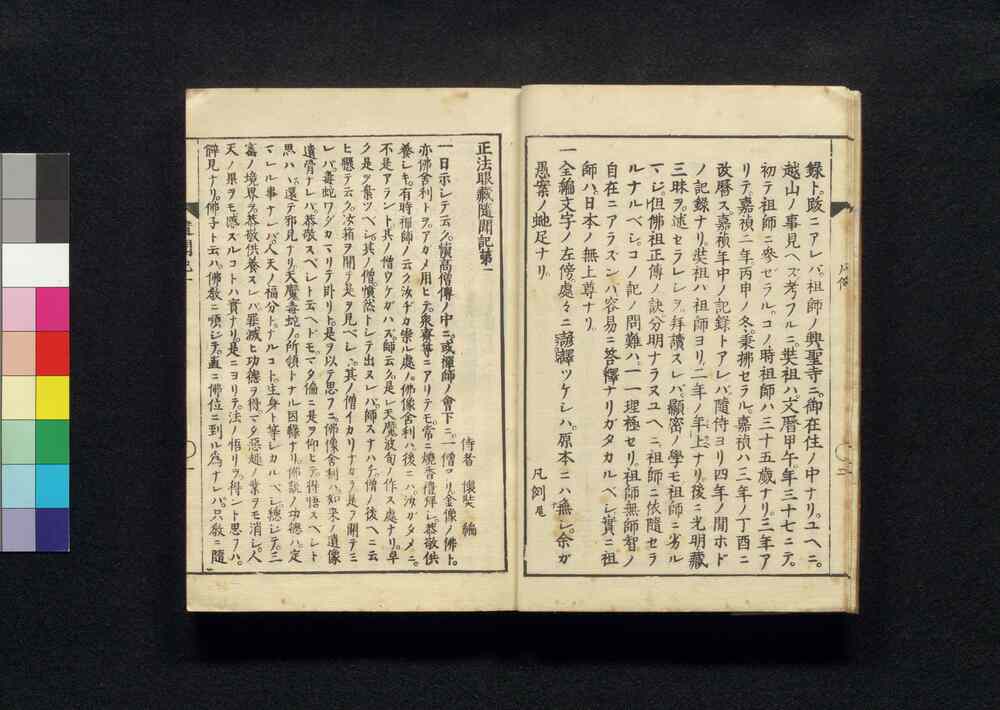 錄ト。跋ニアレバ祖師ノ興聖寺ニ。御在住ノ中ナリ。ユヘニ。
越山ノ事見ヘズ考フルニ。奘祖ハ。文曆甲午。年三十七ニテ。
初テ祖師ニ參セラル。コノ時祖師ハ三十五歲ナリ。三年ア
リテ。嘉禎二年。丙申ノ冬。秉拂セラル。嘉禎ハ三年ノ丁酉ニ
改曆ス。嘉禎年中ノ記錄トアレバ。隨侍ヨリ四年ノ間ホド
ノ記錄ナリ。奘祖ハ祖師ヨリ。二年ノ年上ナリ。後ニ光明藏
三昧ヲ。述セラレシヲ。拜讀スレバ。顯密ノ學モ祖師ニ劣ル
マジ。但佛祖正傳ノ訣。分明ナラヌユヘニ。祖師ニ依隨セラ
ルナルベシ。コノ記ノ問難ハ。一一理極セリ。祖師無師智ノ
自在ニアラズンバ。容易ニ答釋ナリガタカルベシ。實ニ祖
師ハ。日本ノ無上尊ナリ。
一 全編文字ノ左傍處々ニ。諺釋ツケシハ。原本ニハ無シ。余ガ
愚案ノ虵足ナリ。
凡例尾
正法眼藏隨聞記第一
侍者 懷奘 編
一日示シテ云ク。續高僧傳ノ中ニ。或禪師ノ會下ニ。一僧アリ。金像ノ佛ト。
亦佛舍利トヲ。アガメ用ヒテ。衆寮等ニアリテモ。常ニ燒香禮拜シ。恭敬供
養シキ。有時禪師ノ云ク。汝ヂガ崇ル處ノ。佛像舍利ハ。後ニハ。汝ガタメニ。
不是アラント。其ノ僧ウケガハズ。師云ク。是レ天魔波旬ノ作ス處ナリ。早
ク是ヲ棄ツベシ。其ノ僧憤然トシテ出スレバ。師スナハチ。僧ノ後ヘニ云
ヒ懸テ云ク。汝箱ヲ開テ是ヲ見ベシ。其ノ僧イカリナガラ。是ヲ開テミ
レバ毒蛇ワダカマリテ臥リト。是ヲ以テ思フニ。佛像舍利ハ。如來ノ遺像
遺骨ナレバ。恭敬スベシト云ヘドモ。マタ偏ニ是ヲ仰ヒデ。得悟スベシト
思ハヾ。還テ邪見ナリ。天魔毒蛇ノ。所領トナル因緣ナリ。佛說ノ功德ハ定
マレル事ナレバ。人天ノ福分ト。ナルコト。生身ト等シカルベシ。總ジテ。三
寶ノ境界ヲ。恭敬供養スレバ。罪滅ヒ功德ヲ得。マタ惡趣ノ業ヲモ消シ。人
天ノ果ヲモ感ズルコトハ實ナリ。是ニヨリテ。法ノ悟リヲ。得ント思フハ。
僻見ナリ。佛子ト云ハ。佛敎ニ順ジテ。直ニ佛位ニ到ル爲ナレバ。只敎ニ隨